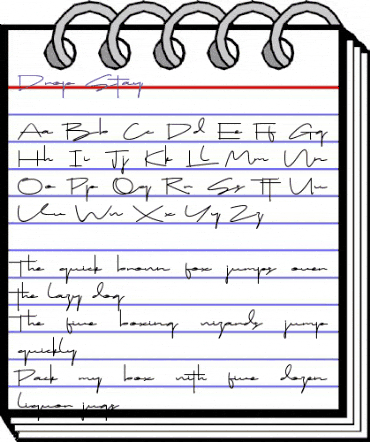 Drop Stay
Aa Bb Cc Dd Ee Ff Gg
Hh Ii Jj Kk Ll Mm Nn
Oo Pp Qq Rr Ss Tt Uu
Vv Ww Xx Yy Zz
The quick brown fox jumps over
the lazy dog
The five boxing wizards jump
quickly
Pack my box with five dozen
liquor jugs